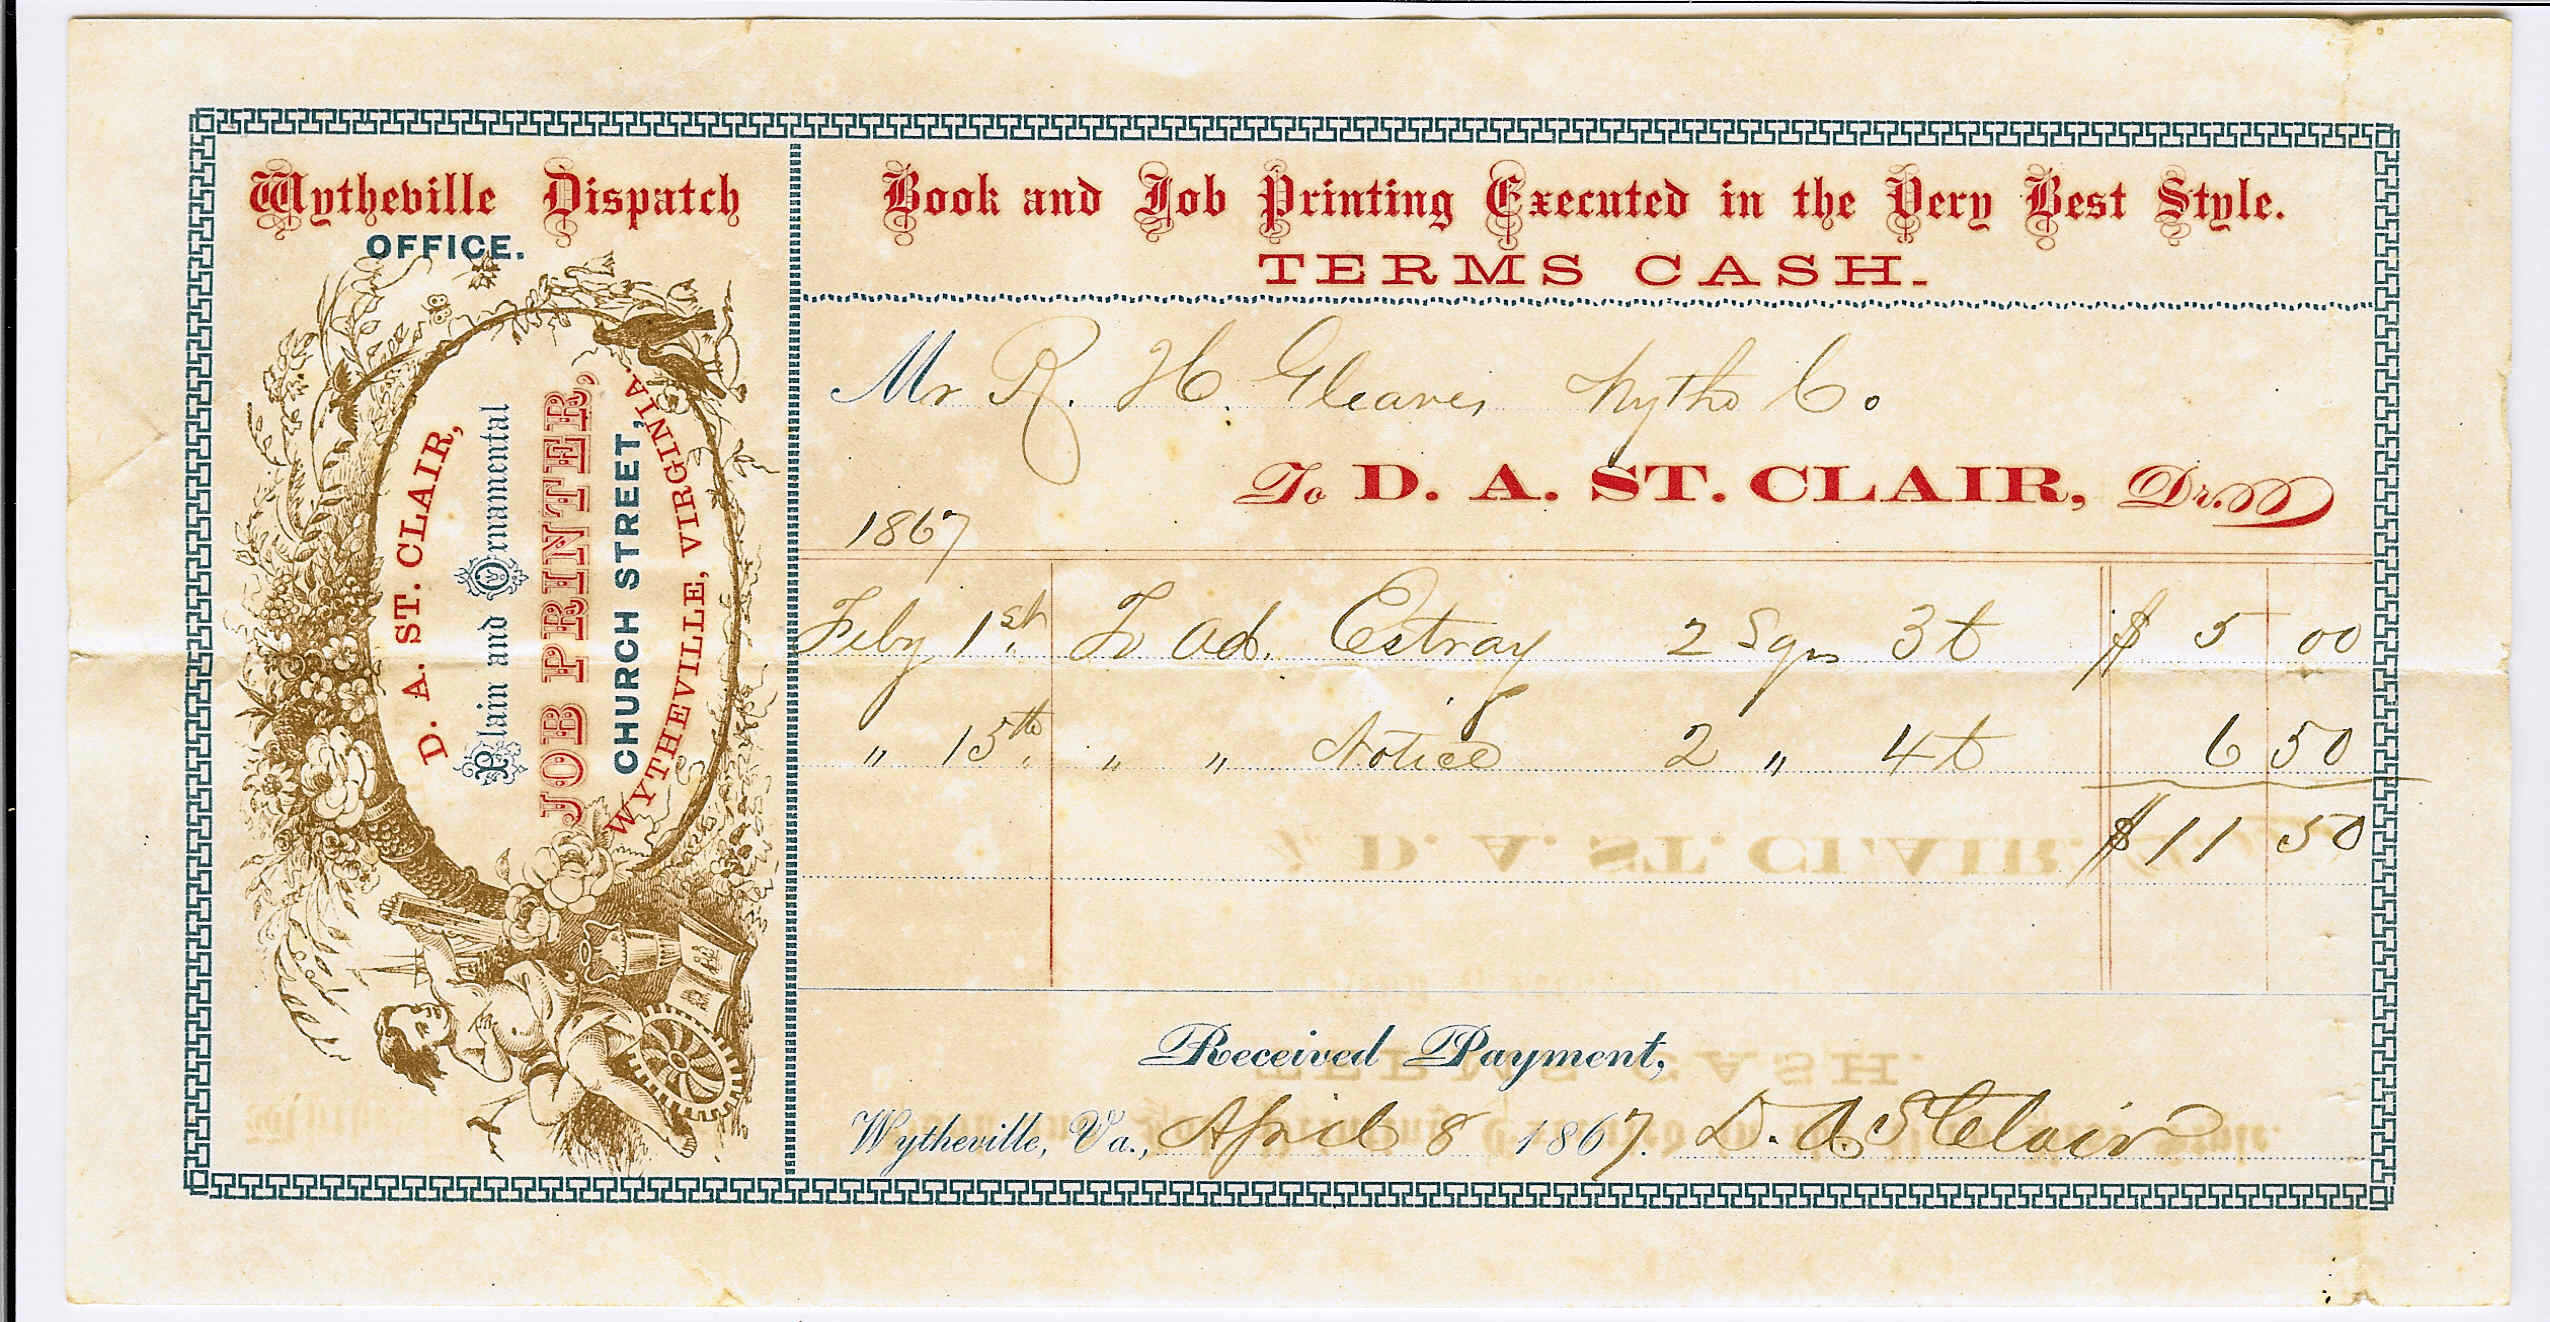 Wytheville Dispatch
OFFICE.
D. A. ST. CLAIR,
Plain and Ornamental
JOB PRINTER,
CHURCH STREET,
WYTHEVILLE, VIRGINIA.
Book and Job Printing Executed in the Very Best Style.
TERMS CASH.
Mr R. H. Gleaves Wythe Co.
To D. A. ST. CLAIR, Dr.
1867
Feby 1st. To Ad. Estray 2 Sqrs 3t $ 5 00
" 15th. " " Notice 2 " 4t 6 50
$ 11 50
Received Payment,
Wytheville, Va., April 8 1867. D. A. St Clair